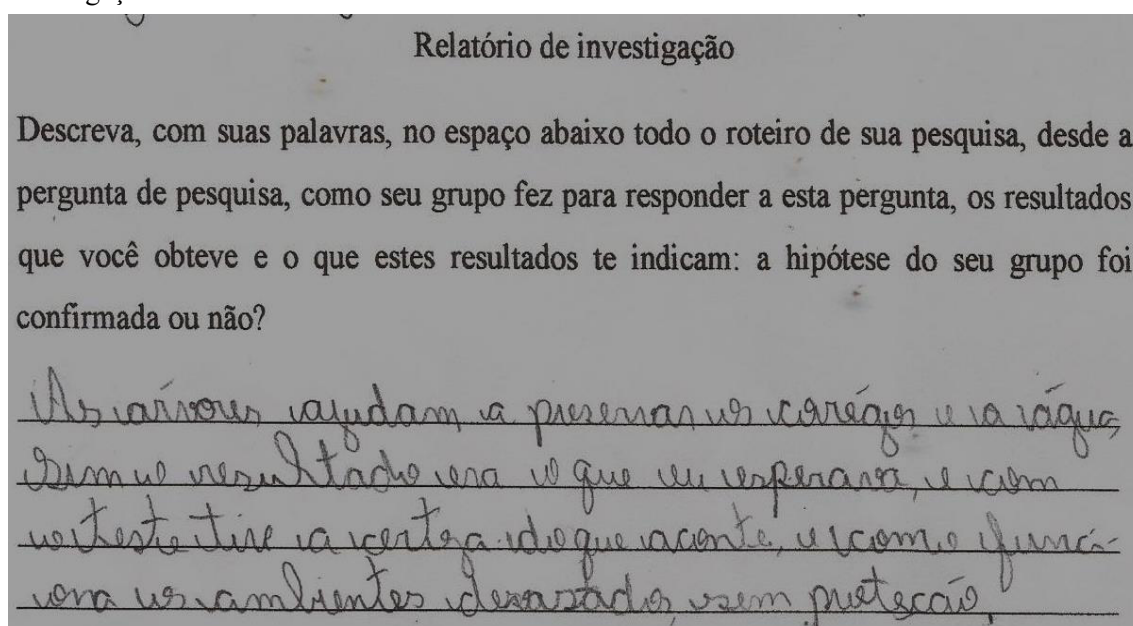 Relatório de investigação
Descreva, com suas palavras, no espaço abaixo todo o roteiro de sua pesquisa, desde a
pergunta de pesquisa, como seu grupo fez para responder a esta pergunta, os resultados
que você obteve e o que estes resultados te indicam: a hipótese do seu grupo foi
confirmada ou não?
As árvores ajudam a preservar os corégos e a água,
Sim o resultado era o que eu esperava, e com
o teste tive a certeza do que aconte, e como func-
iona os ambientes devastados sem proteção.